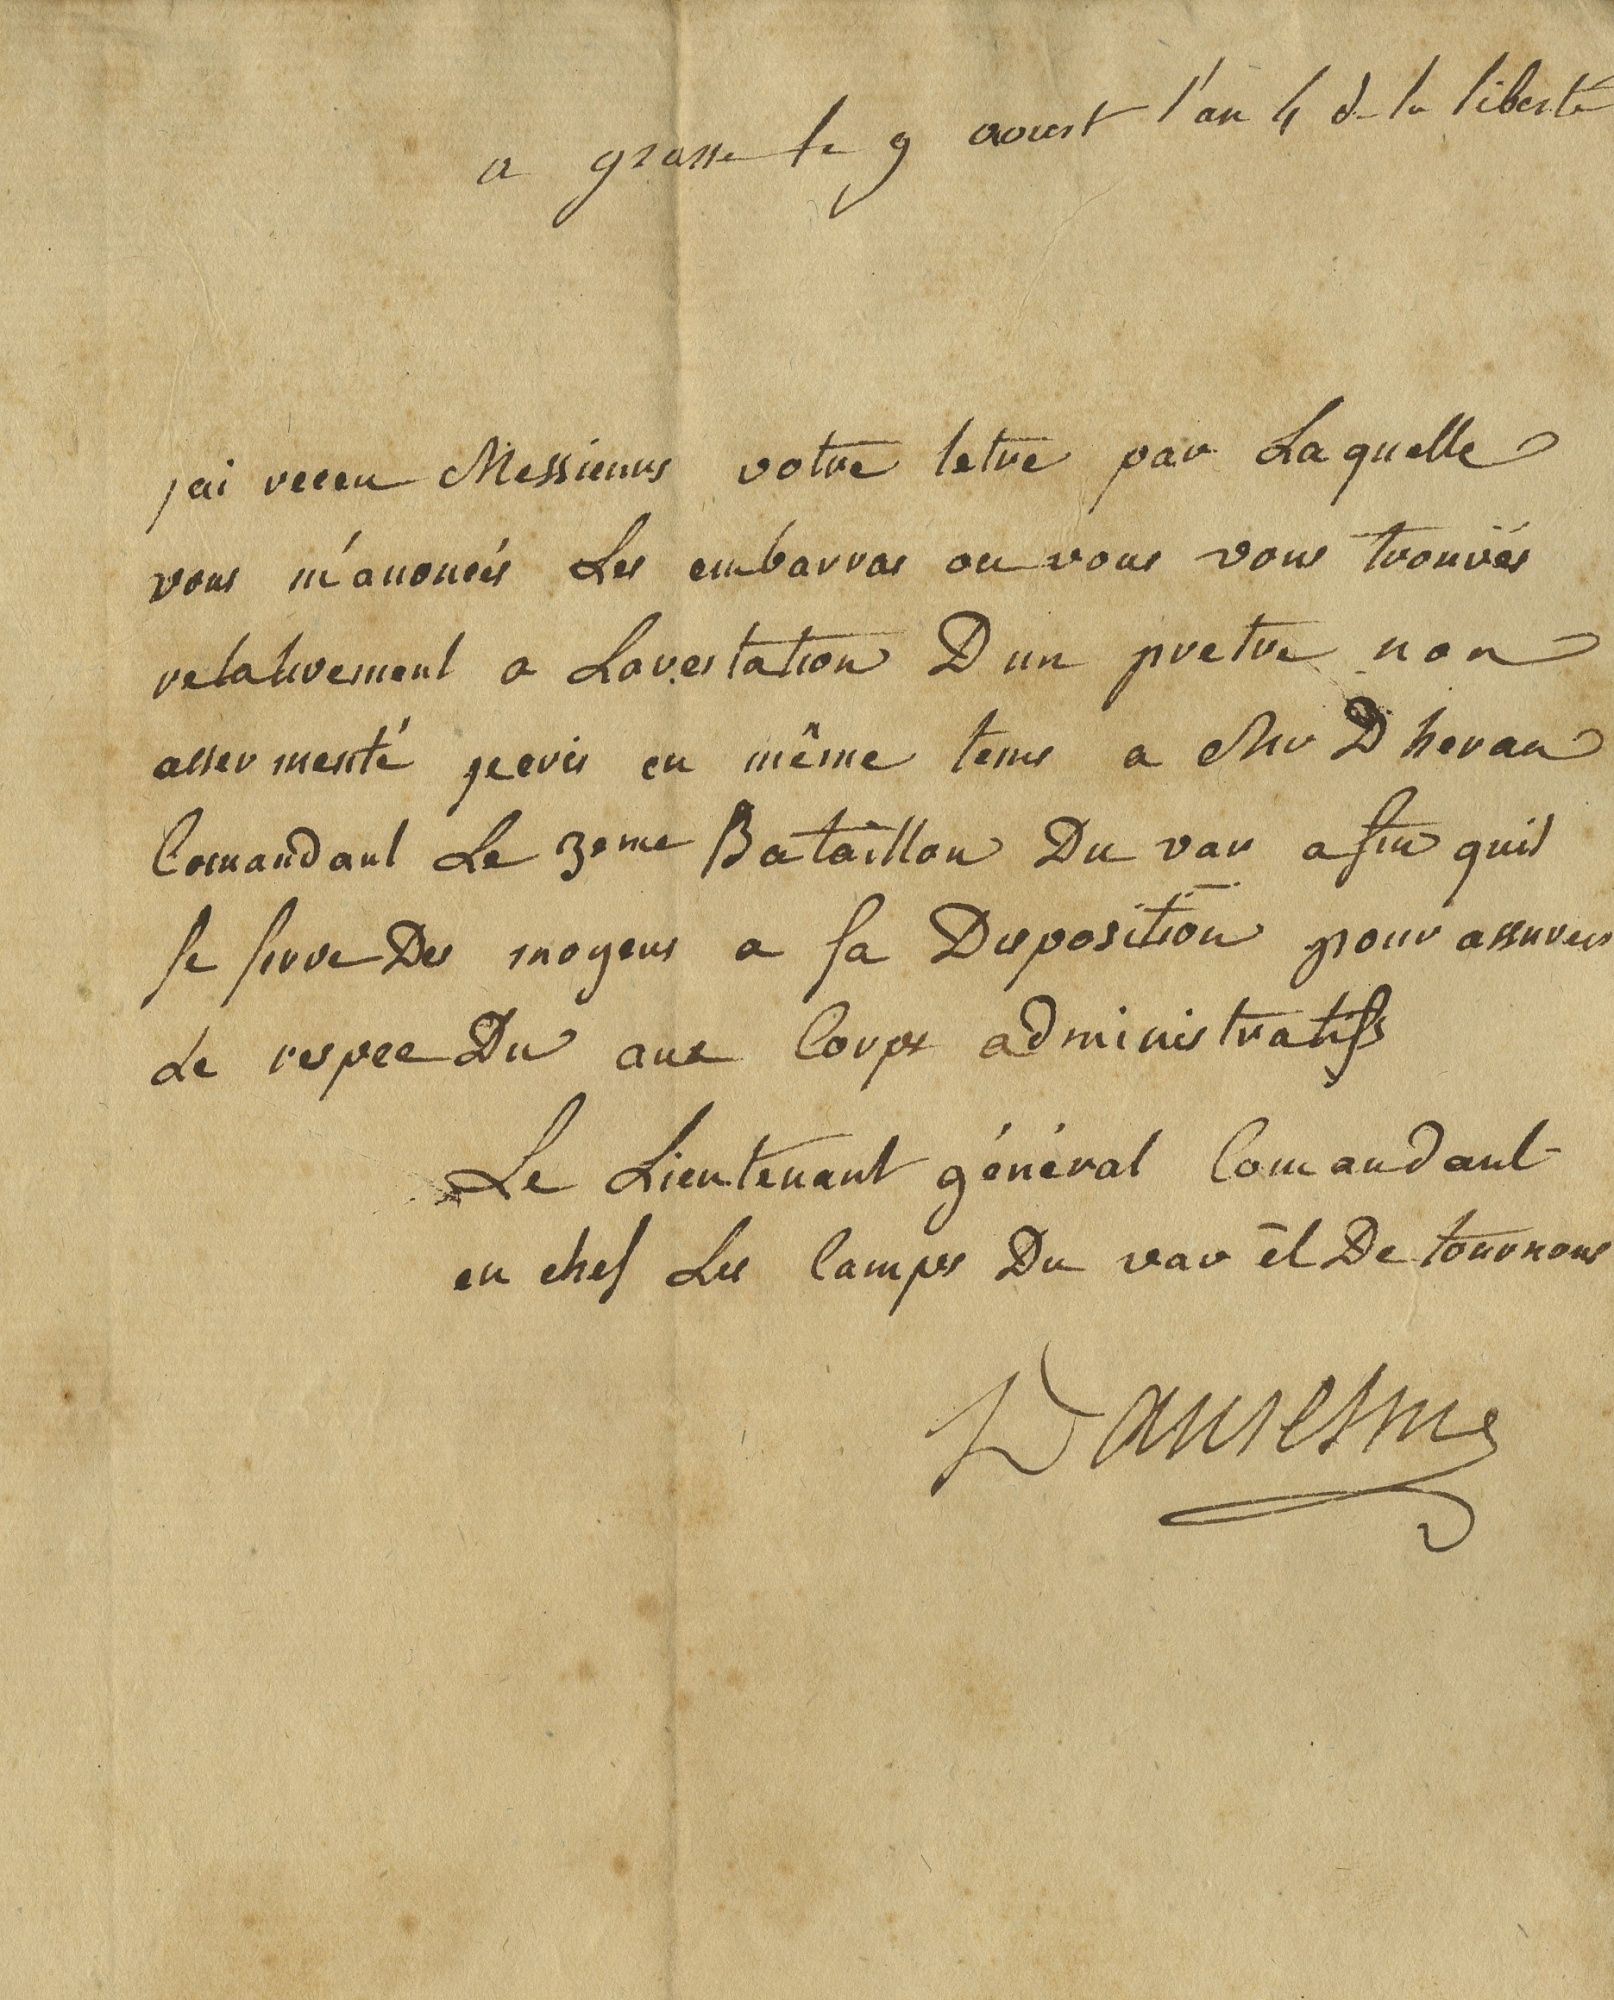 a grasse le 9 aoust l'an 4 de la liberté
jai receu Messieurs votre letre par Laquelle
vous m'anoncés Les embarras ou vous vous trouvés
relativement a Larestation D'un pretre non
assermenté jecris en même tems a Mr Dheran
Comandant Le 3eme Bataillon Du var afin quil
se serve Des moyens a sa Disposition pour assurer
Le respec Du aux Corps administratifs
Le Lieutenant général Comandant
en chef Les Camps Du var et De tournous
Danselme